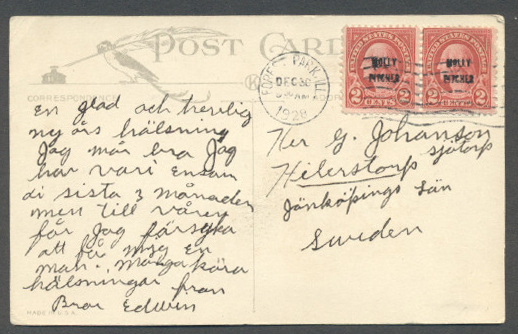 POST CARD
CORRESPONDENCE
En glad och trevlig
ny års hälsning
Jag mår bra Jag
har vari ensam
di sista 3 månaden
men till våren
får Jag försyka
att få mig en
man. Många kära
hälsningar från
Bror Edwin
MADE IN U.S.A.
FOREST PARK, ILL.
DEC 30
1928
UNITED STATES POSTAGE
MOLLY
PITCHER
2 CENTS 2
UNITED STATES POSTAGE
MOLLY
PITCHER
2 CENTS 2
Her G. Johanson
Hilerstorp sjötorp
Jönköpings Län
Sweden